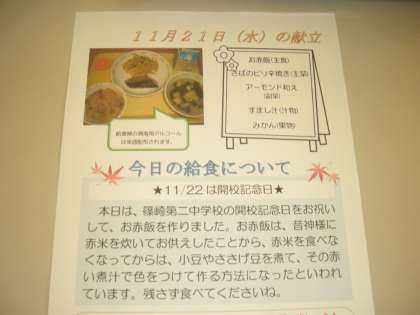 11月21日(水)の献立
お赤飯(主食)
さばのピリ辛焼き(主菜)
アーモンド和え
(副菜)
すまし汁(汁物)
みかん(果物)
給食線の消毒用アルコール
は後援配布されます。
今日の給食について
★11/22は開校記念日★
本日は、篠崎第二中学校の開校記念日をお祝いし
て、お赤飯を作りました。お赤飯は、昔神様に
赤米を炊いてお供えしたことから、赤米を食べな
くなってからは、小豆やささげ豆を煮て、その赤
い煮汁で色をつけて作る方法になったといわれ
ています。残さず食べてくださいね。